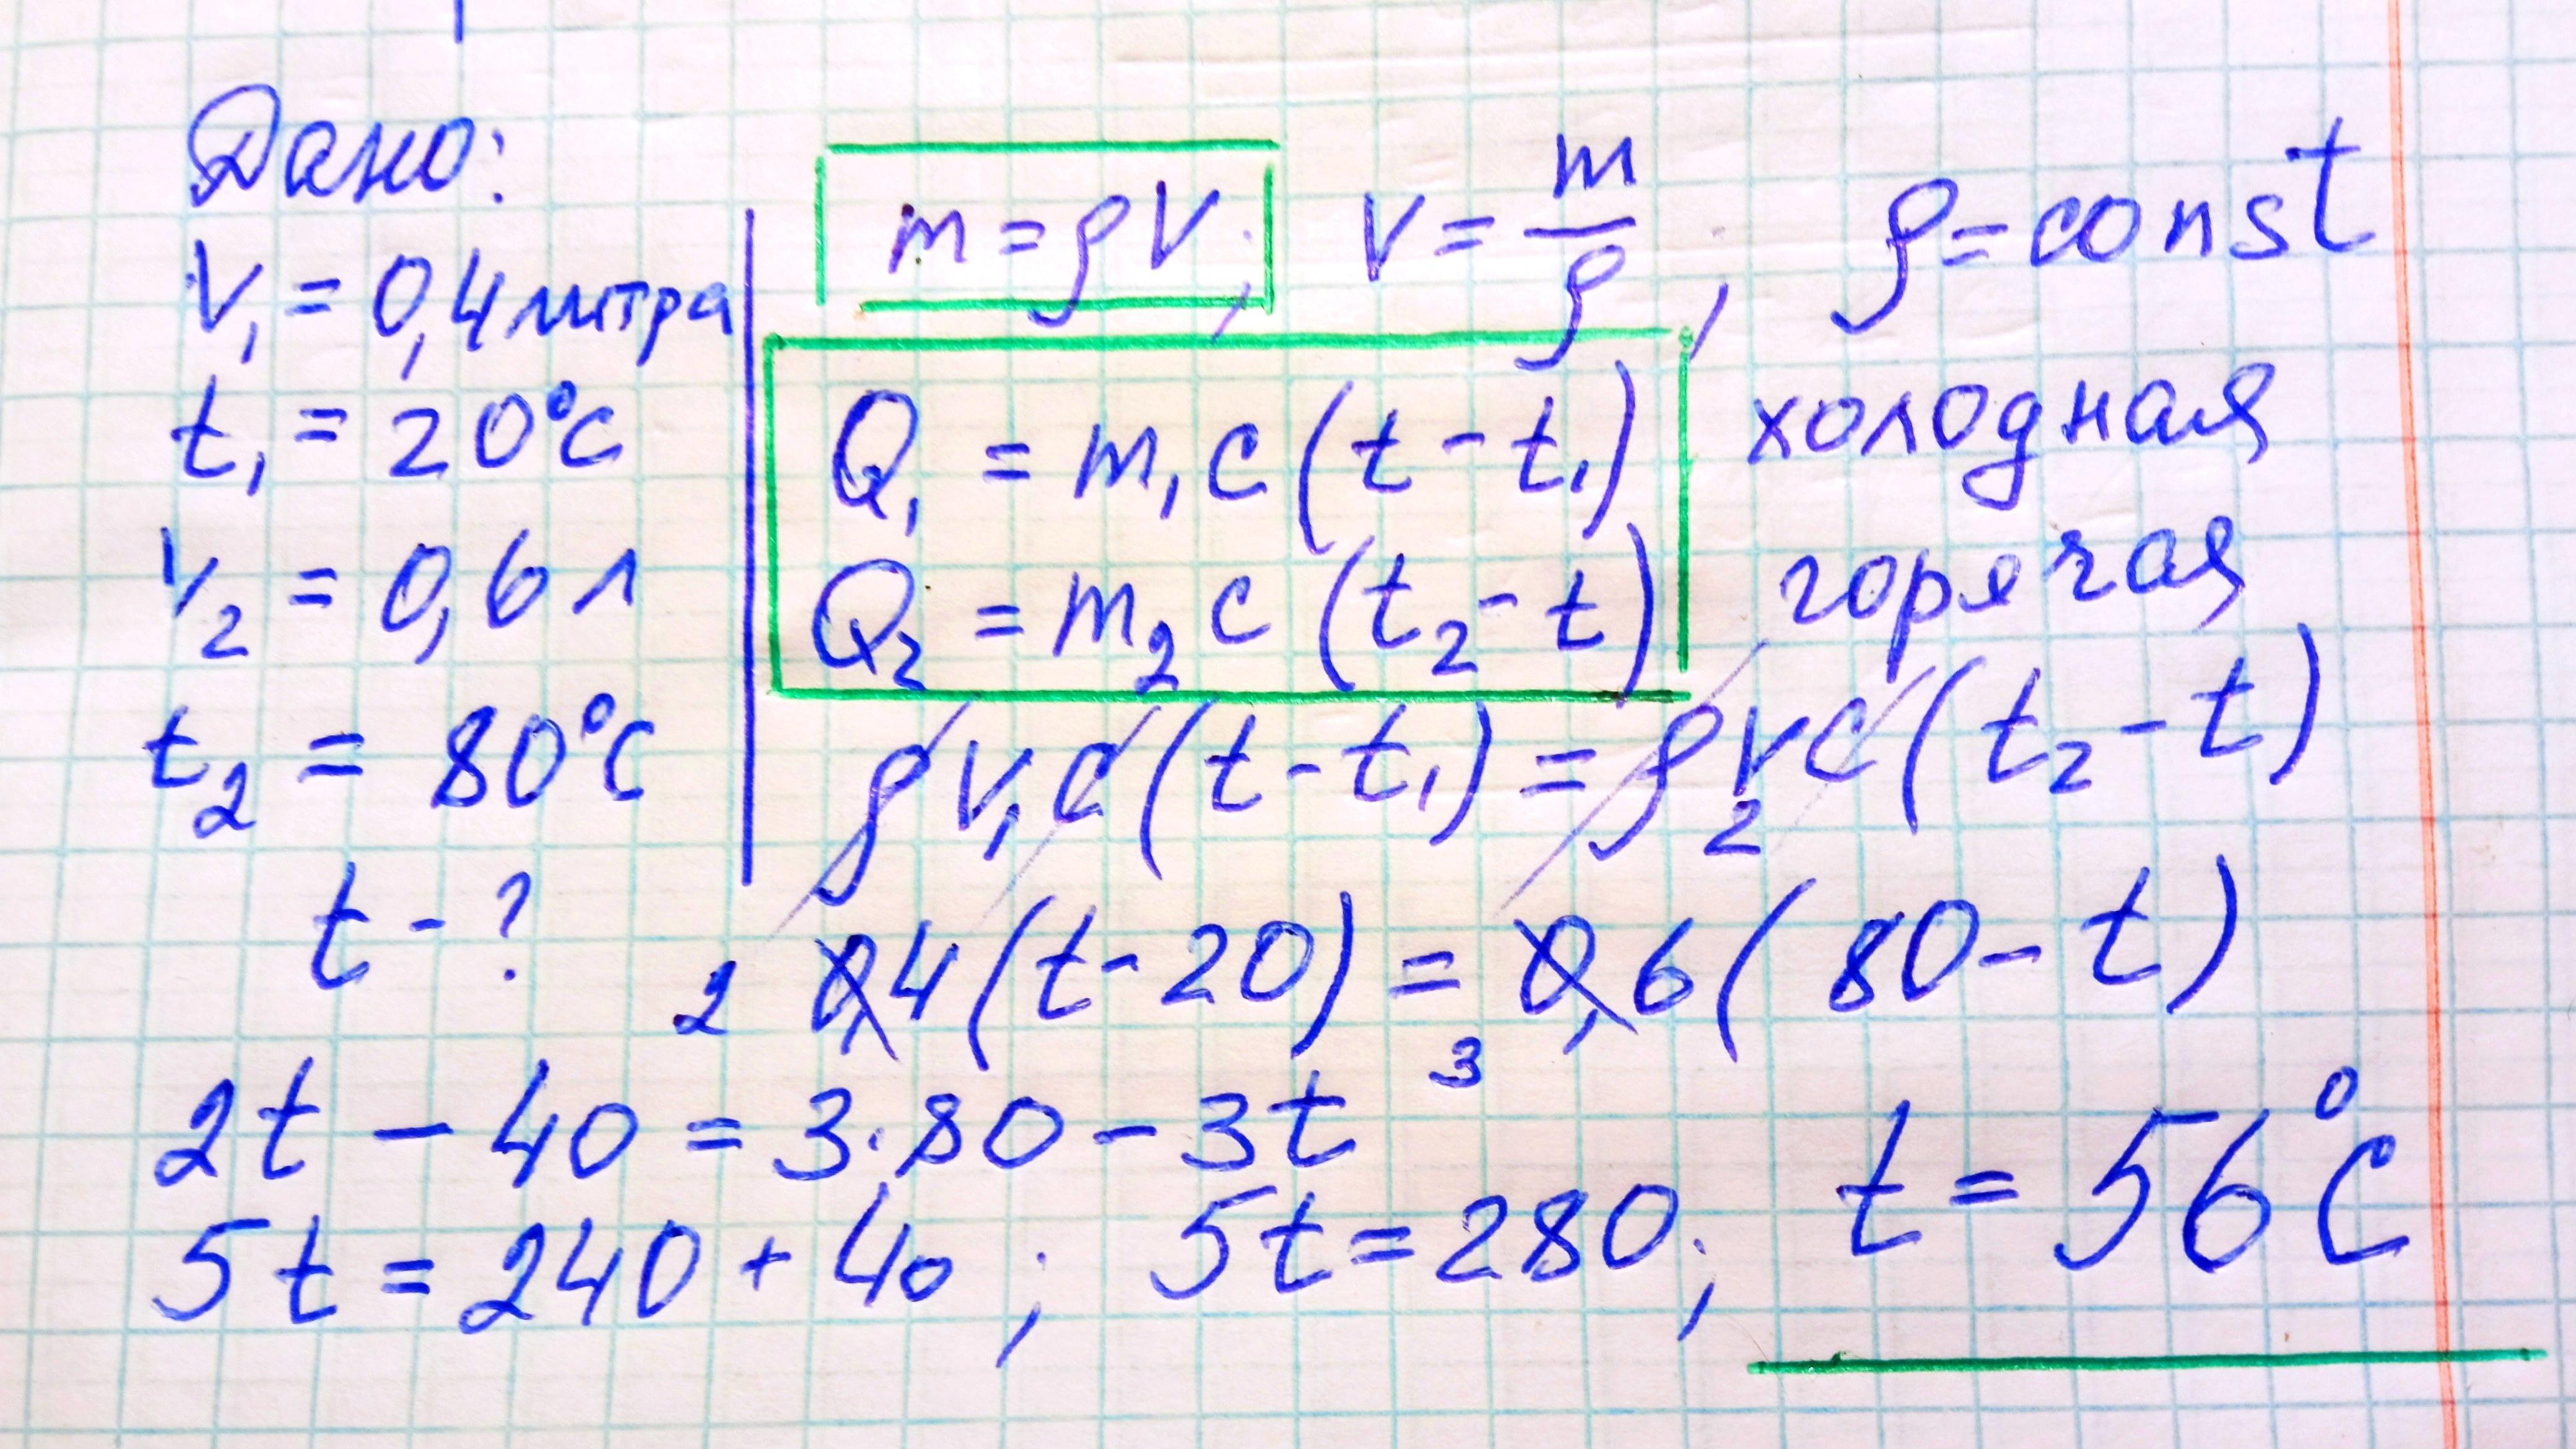 Дано:
V₁ = 0,4 литра
t₁ = 20°C
V₂ = 0,6 л
t₂ = 80°C
t - ?
m = ρV; V = m/ρ; ρ = const
Q₁ = m₁c(t - t₁) холодная
Q₂ = m₂c(t₂ - t) горячая
ρV₁c(t - t₁) = ρV₂c(t₂ - t)
2 0,4(t - 20) = 0,6(80 - t)
3
2t - 40 = 3·80 - 3t
5t = 240 + 40; 5t = 280; t = 56°C